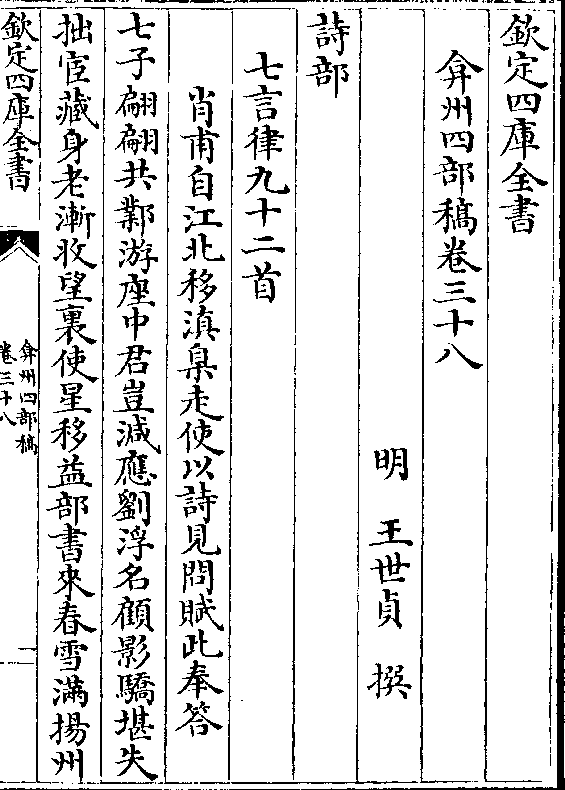 欽定四庫全書
弇州四部稿卷三十八
明 王世貞 撰
詩部
七言律九十二首
肖甫自江北移滇臬走使以詩見問賦此奉答
七子翩翩共鄴游座中君豈減應劉浮名顧影驕堪失
拙宦藏身老漸收望裏使星移益部書來春雪滿揚州
欽定四庫全書
弇州四部稿
卷三十八
一